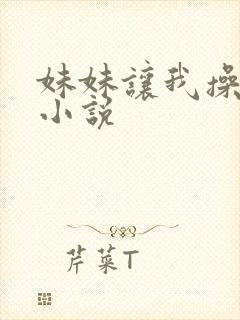 妹妹讓我操
小說
芹菜T